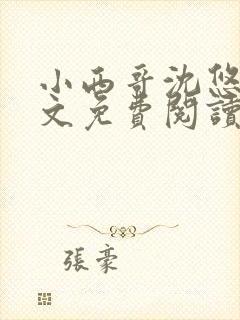 小西哥沈悠
文免費閱讀
張豪